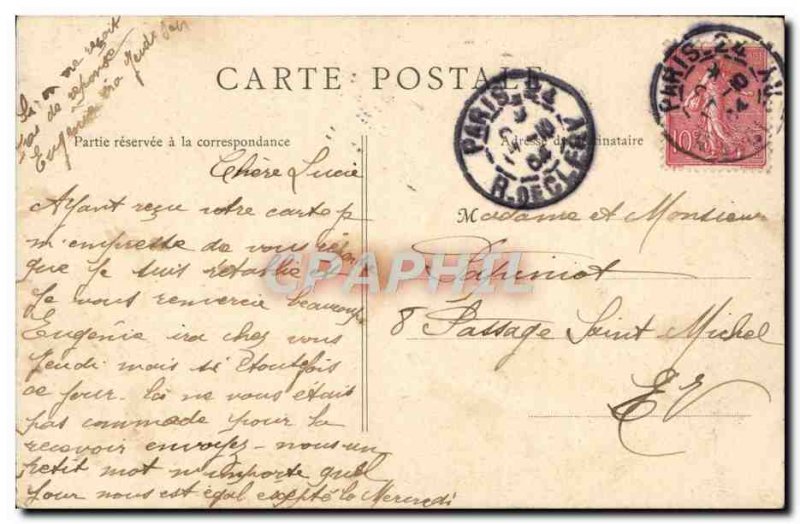 Si on ne reçoit
pas de réponse
Eugénie ira Jeudi
CARTE POSTALE
Partie réservée à la correspondance
Adresse du destinataire
PARIS 24
R. DE CLER
PARIS 24
10
Chère Lucie
Ayant reçu votre carte je
m'empresse de vous
que je suis rétablie
Je vous remercie beaucoup
Eugénie ira chez vous
Jeudi mais si toutefois
ce jour là ne vous était
pas commode pour la
recevoir envoyez-nous un
petit mot n'importe quel
jour nous est égal excepté le Mercredi
Madame et Monsieur
8 Passage Saint Michel
EV
CPAPHIL